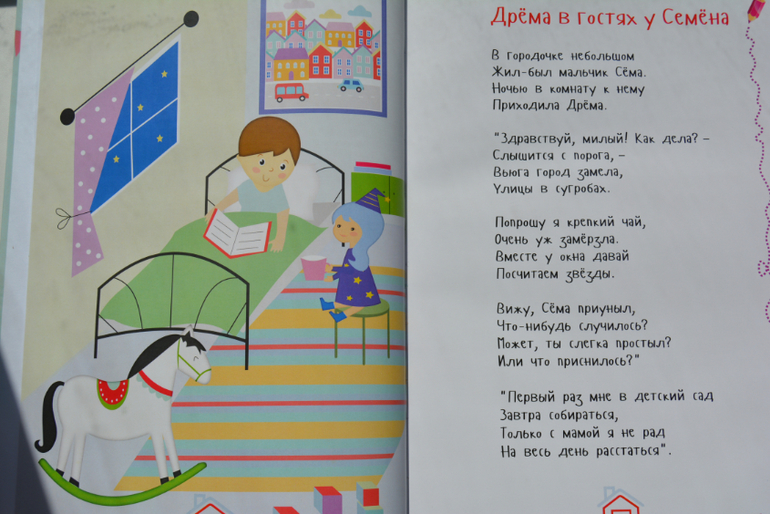 Дрёма в гостях у Семёна
В городочке небольшом
Жил-был мальчик Сёма.
Ночью в комнату к нему
Приходила Дрёма.
"Здравствуй, милый! Как дела? –
Слышится с порога, –
Вьюга город замела,
Улицы в сугробах.
Попрошу я крепкий чай,
Очень уж замёрзла.
Вместе у окна давай
Посчитаем звёзды.
Вижу, Сёма приуныл,
Что-нибудь случилось?
Может, ты слегка простыл?
Или что приснилось?"
"Первый раз мне в детский сад
Завтра собираться,
Только с мамой я не рад
На весь день расстаться".